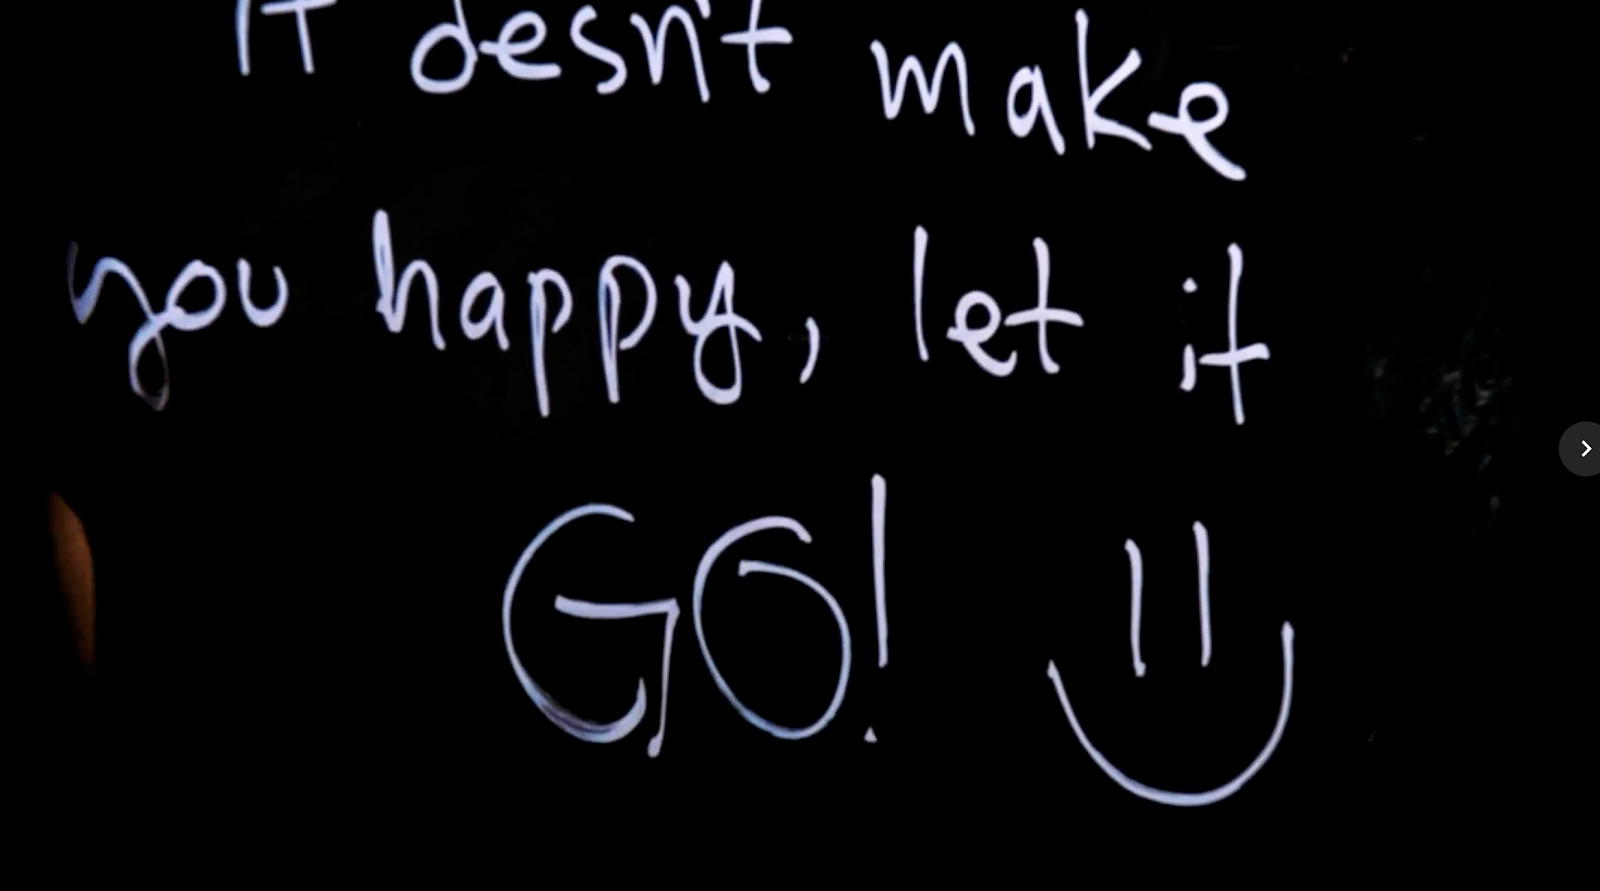 IT desn't make
you happy, let it
GO!